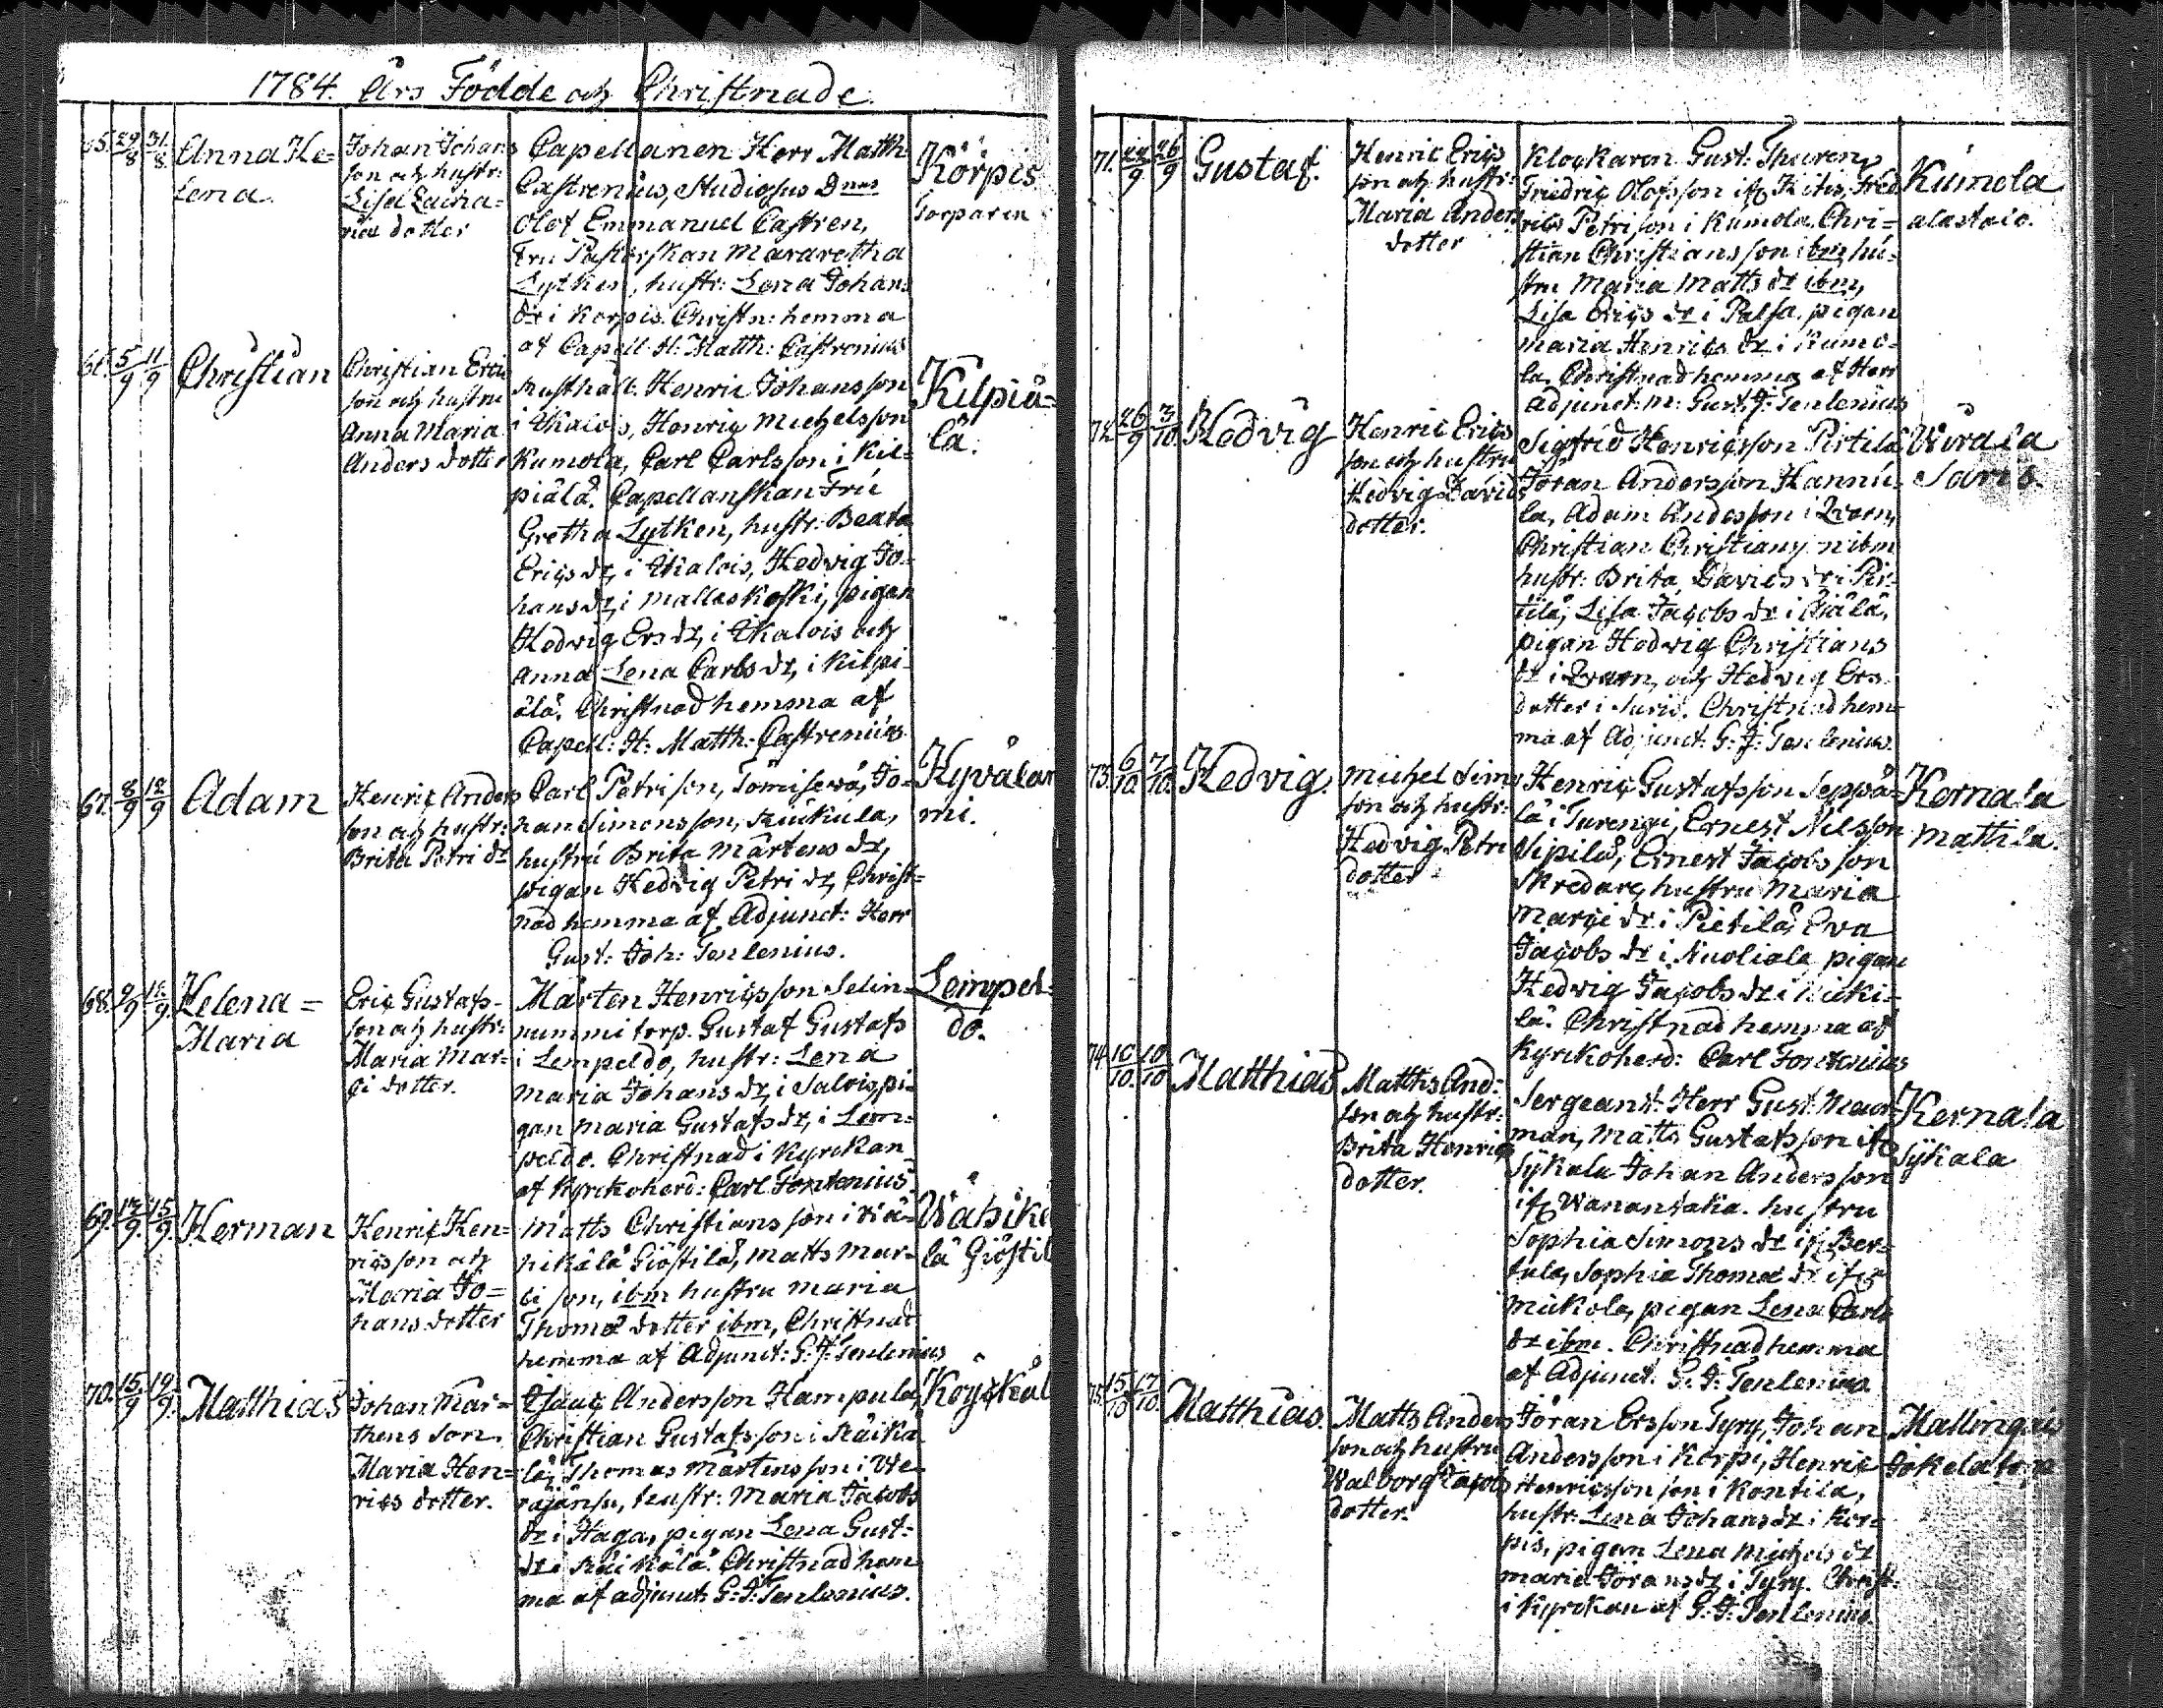 1784. Års Födde och Christnade.
65. 29/8 31/8 Anna He=
lena.
Johan Johans
son och hustr:
Lisa Zacha=
riæ dotter
Capellanen Herr Matth:
Castrenius, Studiosus Dnus
Olof Emmanuel Castren,
Fru Pastorskan Mararetha
Lytken, hustr: Lena Johans
dr i Korpis. Christn: hemma
af Capell: H: Matth: Castrenius
Körpis
Torparen
66. 5/9 11/9 Christian
Christian Erics
son och hustru
Anna Maria
Anders dotter
Rusthåll. Henric Johansson
i Ekalois, Henric Michelsson
Kumola, Carl Carlsson i Kil=
piälä. Capellanskan Fru
Gretha Lytken, hustr: Beata
Erics dr, i Ekalois, Hedvig Jo=
hans dr, i Mallaskoski, pigan
Hedvig Ers dr, i Ekalois och
Anna Lena Carls dr, i Kilpi=
älä. Christnad hemma af
Capell: H: Matth: Castrenius.
Kilpiä=
lä.
67. 8/9 12/9 Adam
Henric Anders
son och hustr:
Brita Petri dr
Carl Petri son, Tömisewä, Jo=
han Simonsson, Kuukula,
hustru Brita Mårtens dr,
pigan Hedvig Petri dr, Christ=
nad hemma af Adjunct: Herr
Gust: Joh: Tenlenius.
Hyvälam
mi.
68. 9/9 12/9 Helena=
Maria
Eric Gustafs=
son och hustr:
Maria Mar=
ci dotter.
Mårten Henricsson Selin=
nummi torp. Gustaf Gustafs
i Lempeldo, hustr: Lena
Maria Johans dr, i Salois, pi=
gan Maria Gustafs dr, i Lem=
peldo. Christnad i Kyrckan
af Kyrckoherd: Carl Fontenius.
Leimpel=
do.
69. 12/9. 15/9. Herman
Henric Hen=
ricsson och
Maria Jo=
hans dotter
Matts Christiansson i Vä=
hikälä Giöstilä, Matts Mar=
ci son, ibm hustru Maria
Thomæ dotter ibm, Christnad
hemma af Adjunct: G: J: Tenlenius
Wähikä
lä Giöstil
70. 15/9 19/9. Matthias
Johan Mår=
thens son.
Maria Hen=
rics dotter.
Isaac Andersson Hampula,
Christian Gustafsson i Räikä
lä, Thomas Mårtensson i We=
rajänsu, hustr: Maria Jacobs
dr i Haga, pigan Lena Gust=
dr i Räikälä. Christnad hem
ma af adjunct: G: J: Tenlenius.
71. 22/9 26/9 Gustaf.
Henric Erics
son och hustr:
Maria Anders
dotter
Klockaren Gust: Thuren,
Friedric Olofsson ifr Hitis, Fred
rics Petrison i Kumola. Chri=
stian Christiansson ibm, hu=
stru Maria Matts dr ibm,
Lisa Erics dr i Palsa, pigan
Maria Henrics dr i Kumo=
la. Christnad hemma af Herr
Adjunct: M: Gust: J: Tenlenius
Kumola
alastalo.
72. 26/9 3/10 Hedvig
Henric Erics
son och hustru
Hedvig Davids
dotter.
Sigfrid Henricsson Pirtilä
Jöran Andersson Hannu=
la, Adam Andersson i Qvarn,
Christian Christians n ibm
hustr: Brita Davids dr i Pir=
tilä, Lisa Jacobs dr i Äiälä,
pigan Hedvig Christians
dr i Qvarn, och Hedvig Ers
dotter i Saris. Christnad hem=
ma af Adjunct: G: J: Tenlenius.
Virala
Saris.
73. 6/10 7/10 Hedvig.
Michel Sims
son och hustr:
Hedvig Petri
dotter
Henric Gustafsson Seppä=
lä i Turengi, Ernest Nilsson
Sipilä, Ernest Jacobsson
Skredare, hustru Maria
Marci dr i Pietilä, Eva
Jacobs dr i Nuoliala, pigan
Hedvig Jacobs dr i Kuki=
lä. Christnad hemma af
Kyrckoherd: Carl Fontenius
Kernala
Mattila.
74. 10/10. 10/10 Matthias
Matths And:
son och hustr:
Brita Henrics
dotter.
Sergeant: Herr Gust: Mear=
man, Matts Gustafsson ifr
Sykala Johan Andersson
ifr Wanantaka. hustru
Sophia Simons dr ifr Ber=
tula, Sophia Thomæ dr ifr
Mickola, pigan Lena Carls
dr ibm. Christnad hemma
af Adjunct. G: J: Tenlenius.
Kernala
Sykala
75. 15/10 17/10. Matthias.
Matts Anders
son och hustru
Walborg Jacobs
dotter.
Jöran Ersson Tyry, Johan
Andersson i Korpi, Henric
Henricsson son i Kontila,
hustr: Lena Johans dr i Kor=
pis, pigan Lena Michels dr
Maria Jörans dr i Tyry. Christ:
i Kyrckan af G: J: Tenlenius.
Mallingais